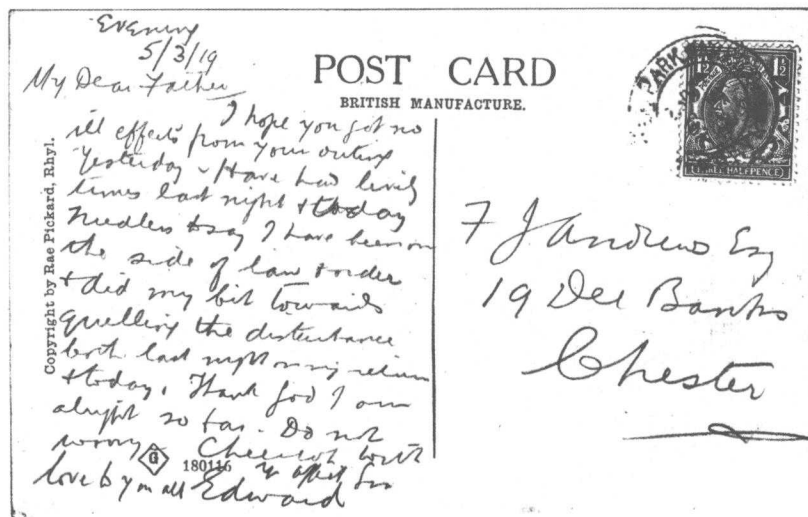 Evening
5/3/19
My Dear Father
I hope you got no
ill effects from your outing
Yesterday - Have had lively
times last night & today
Needless to say I have been on
the side of law & order
& did my bit towards
quelling the disturbance
both last night on my return
& today. Thank God I am
alright so far. Do not
worry. Cheerot with
love to you all Yr affect Son
Edward
POST CARD
BRITISH MANUFACTURE.
Copyright by Rae Pickard, Rhyl.
G
180116
PARK
1½ 1½
HALFPENCE
F J Andrews Esq
19 Dee Banks
Chester